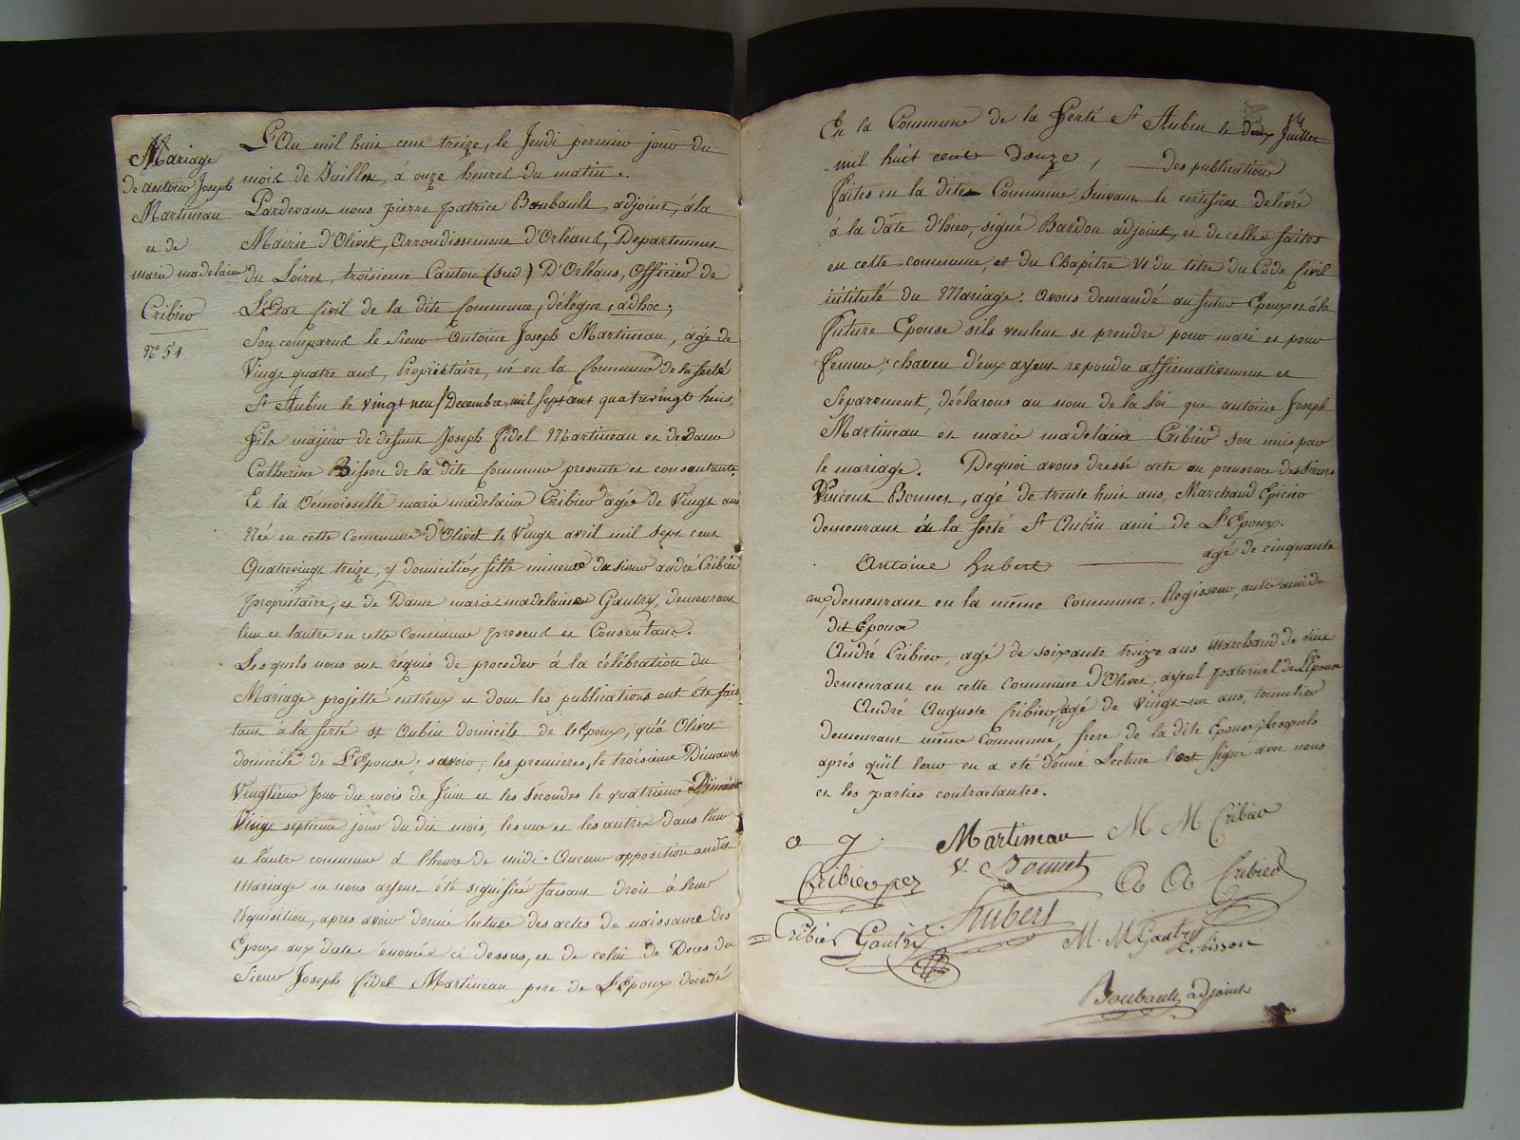 Mariage
de antoine Joseph
Martineau
et de
marie madelaine
Cribier
n° 51
L'An mil huit cent treize, le Jeudi premier jour du
mois de Juillet, à onze heures du matin.
Pardevant nous pierre patrice Boubault, adjoint, à la
Mairie d'Olivet, Arroudissement d'Orleans, Departement
du Loiret, troisieme Canton (sud) D'Orléans, Officier de
L'Etat Civil de la dite Commune, délégué, adhoc;
Son comparus le Sieur Antoine Joseph Martineau, agé de
Vingt quatre ans, Propriétaire, né en la Commune de la ferté
St Aubin le vingt neuf Decembre mil sept cent quatrevingt huit,
fils majeur de defunt Joseph fidel Martineau et de Dame
Catherine Bisson de la dite Commune presente et consentante.
Et la Demoiselle marie madelaine Cribier agée de Vingt ans
Née en cette Commune d'Olivet le Vingt avril mil sept cent
Quatrevingt treize, y domiciliée fille mineure du sieur andré Cribier
propriétaire, et de Dame marie madelaine Gautry, demeurant
lun et lautre en cette Commune present et Consentant.
Lesquels nous ont requis de proceder à la célébration du
Mariage projetté entreux et dont les publications ont été fait
tant à la ferté St Aubin domicile de l'Epoux, qu'à Olivet
domicile de L'Epouse; savoir; les premieres, le troisieme Dimanche
Vingtieme Jour du mois de Juin et les secondes le quatrieme Dimanche
Vingt septieme jour du dit mois, les une et les autres dans l'une
et l'autre commune à l'heure de midi. Aucune opposition audit
Mariage ne nous ayant été signifiée faisant droit à leur
requisition, apres avoir donné lecture des actes de naissance des
Epoux aux dates énoncée ci dessus, et de celui de Deces du
Sieur Joseph fidel Martineau pere de L'Epoux décédé
En la Commune de la Ferté St Aubin le deux Juillet
mil huit cent douze, des publications
faites en la dite Commune suivant le certificat délivré
à la date d'hier, signé Bardou adjoint, et de celles faites
en cette commune, et du Chapitre VI du titre du Code Civil
intitulé du Mariage; avons demandé au futur Epoux et à la
future Epouse sils veulent se prendre pour mari et pour
femme; chacun d'eux ayant repondu affirmativement et
Séparement, déclarons au nom de la loi que antoine Joseph
Martineau et marie madelaine Cribier son unis par
le mariage. Dequoi avons dressé acte en presence des sieurs
Vincent Bonnet, agé de trente huit ans, Marchand Epicier
demeurant à la ferté St Aubin ami de L'Epoux.
Antoine hubert agé de cinquante
ans, demeurant en la même commune, Regisseur, autre ami de
dit Epoux
André Cribier, agé de soixante treize ans marchand de vin
demeurant en cette Commune d'Olivet, ayeul paternel de L'Epouse
André Auguste Cribier agé de Vingt-un ans, tonnelier
demeurant même Commune, frere de la dite Epouse; lesquels
après qu'il leur en a été donné Lecture l'ont signé avec nous
et les parties contractantes.
a J. Martineau M M Cribier
V. Bonnet
Cribier per A A Cribier
hubert
Cribier Gautry M. M Gautry
C. bisson
Boubault adjoint